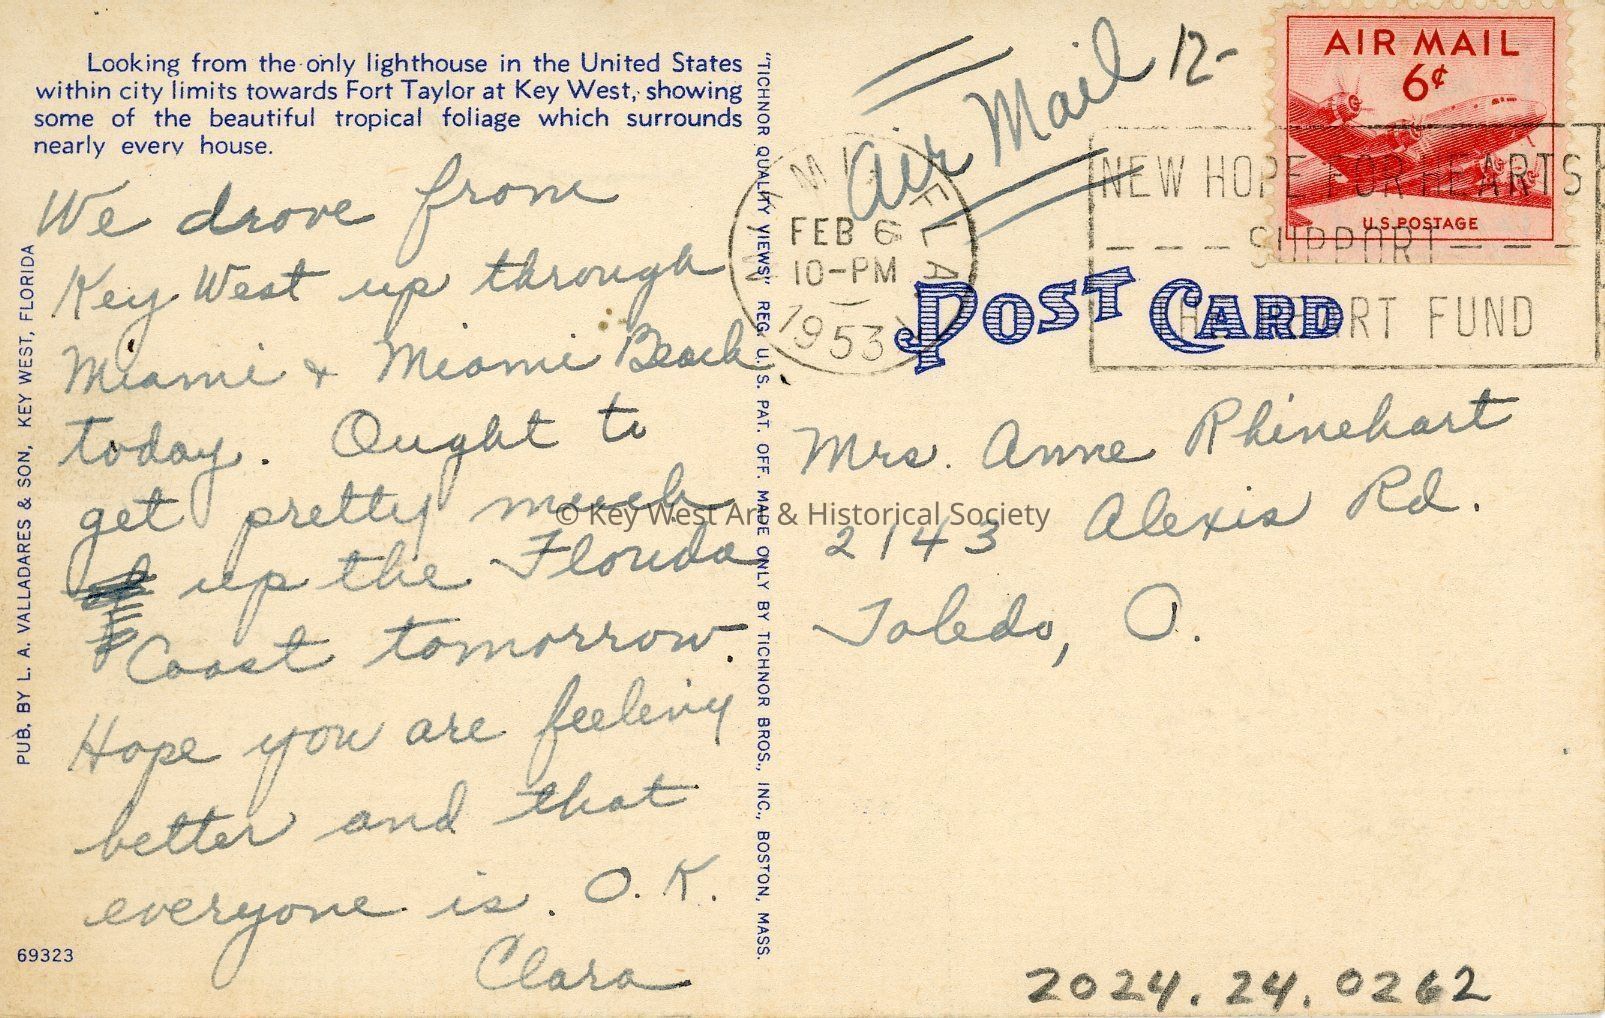 Looking from the only lighthouse in the United States
within city limits towards Fort Taylor at Key West, showing
some of the beautiful tropical foliage which surrounds
nearly every house.
We drove from
Key West up through
Miami + Miami Beach
today. Ought to
get pretty much
up the Florida
Coast tomorrow.
Hope you are feeling
better and that
everyone is. O.K.
Clara
PUB. BY L. A. VALLADARES & SON, KEY WEST, FLORIDA
69323
"TICHNOR QUALITY VIEWS" REG. U. S. PAT. OFF. MADE ONLY BY TICHNOR BROS., INC., BOSTON, MASS.
Air Mail 12-
AIR MAIL
6¢
U.S. POSTAGE
MIAMI FLA.
FEB 6
10-PM
1953
NEW HOPE FOR HEARTS
SUPPORT
HEART FUND
POST CARD
Mrs. Anne Rhinehart
2143 Alexis Rd.
Toledo, O.
© Key West Art & Historical Society
2024.24.0262